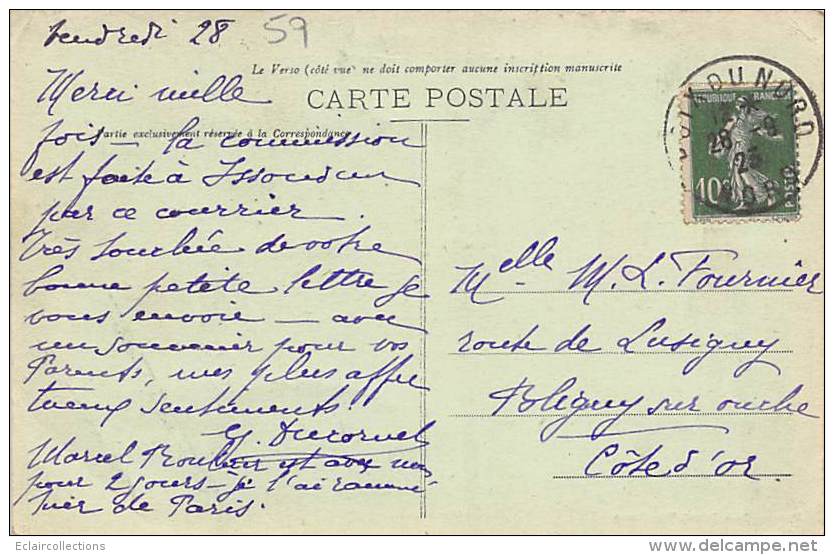 Vendredi 28
59
Le Verso (côté vue) ne doit comporter aucune inscription manuscrite
CARTE POSTALE
Partie exclusivement réservée à la Correspondance
Merci mille
fois – la commission
est faite à Issoudun
par ce courrier.
Très touchée de votre
bonne petite lettre je
vous envoie – avec
un souvenir pour vos
Parents, mes plus affec
tueux sentiments.
Marcel est avec nous
pour 2 jours – je l'ai ramené
hier de Paris.
REPUBLIQUE FRANC
10
POSTES
DU NORD
28 - 8
25
NORD
Melle M. L. Fournier
route de Lusigny
Bligny sur ouche
Côte d'or
Eclaircollections
www.delcampe.net